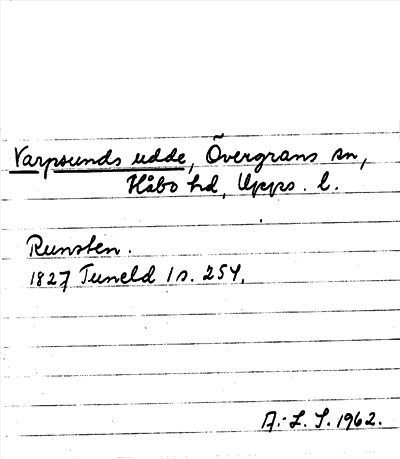 Varpsunds udde, Övergrans sn,
Håbo hd, Upps. l.
Runsten.
1827 Tuneld 1 s. 254.
A.-L. S. 1962.